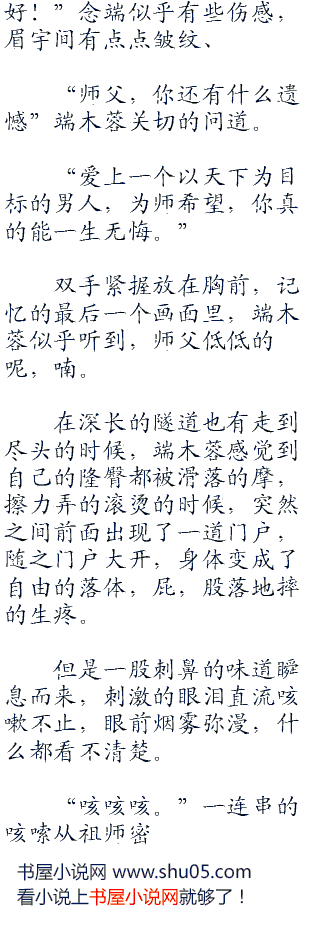 好！”念端似乎有些伤感，
眉宇间有点点皱纹、
“师父，你还有什么遗
憾”端木蓉关切的问道。
“爱上一个以天下为目
标的男人，为师希望，你真
的能一生无悔。”
双手紧握放在胸前，记
忆的最后一个画面里，端木
蓉似乎听到，师父低低的
呢，喃。
在深长的隧道也有走到
尽头的时候，端木蓉感觉到
自己的隆臀都被滑落的摩，
擦力弄的滚烫的时候，突然
之间前面出现了一道门户，
随之门户大开，身体变成了
自由的落体，屁，股落地摔
的生疼。
但是一股刺鼻的味道瞬
息而来，刺激的眼泪直流咳
嗽不止，眼前烟雾弥漫，什
么都看不清楚。
“咳咳咳。”一连串的
咳嗦从祖师密
书屋小说网 www.shu05.com
看小说上书屋小说网就够了！